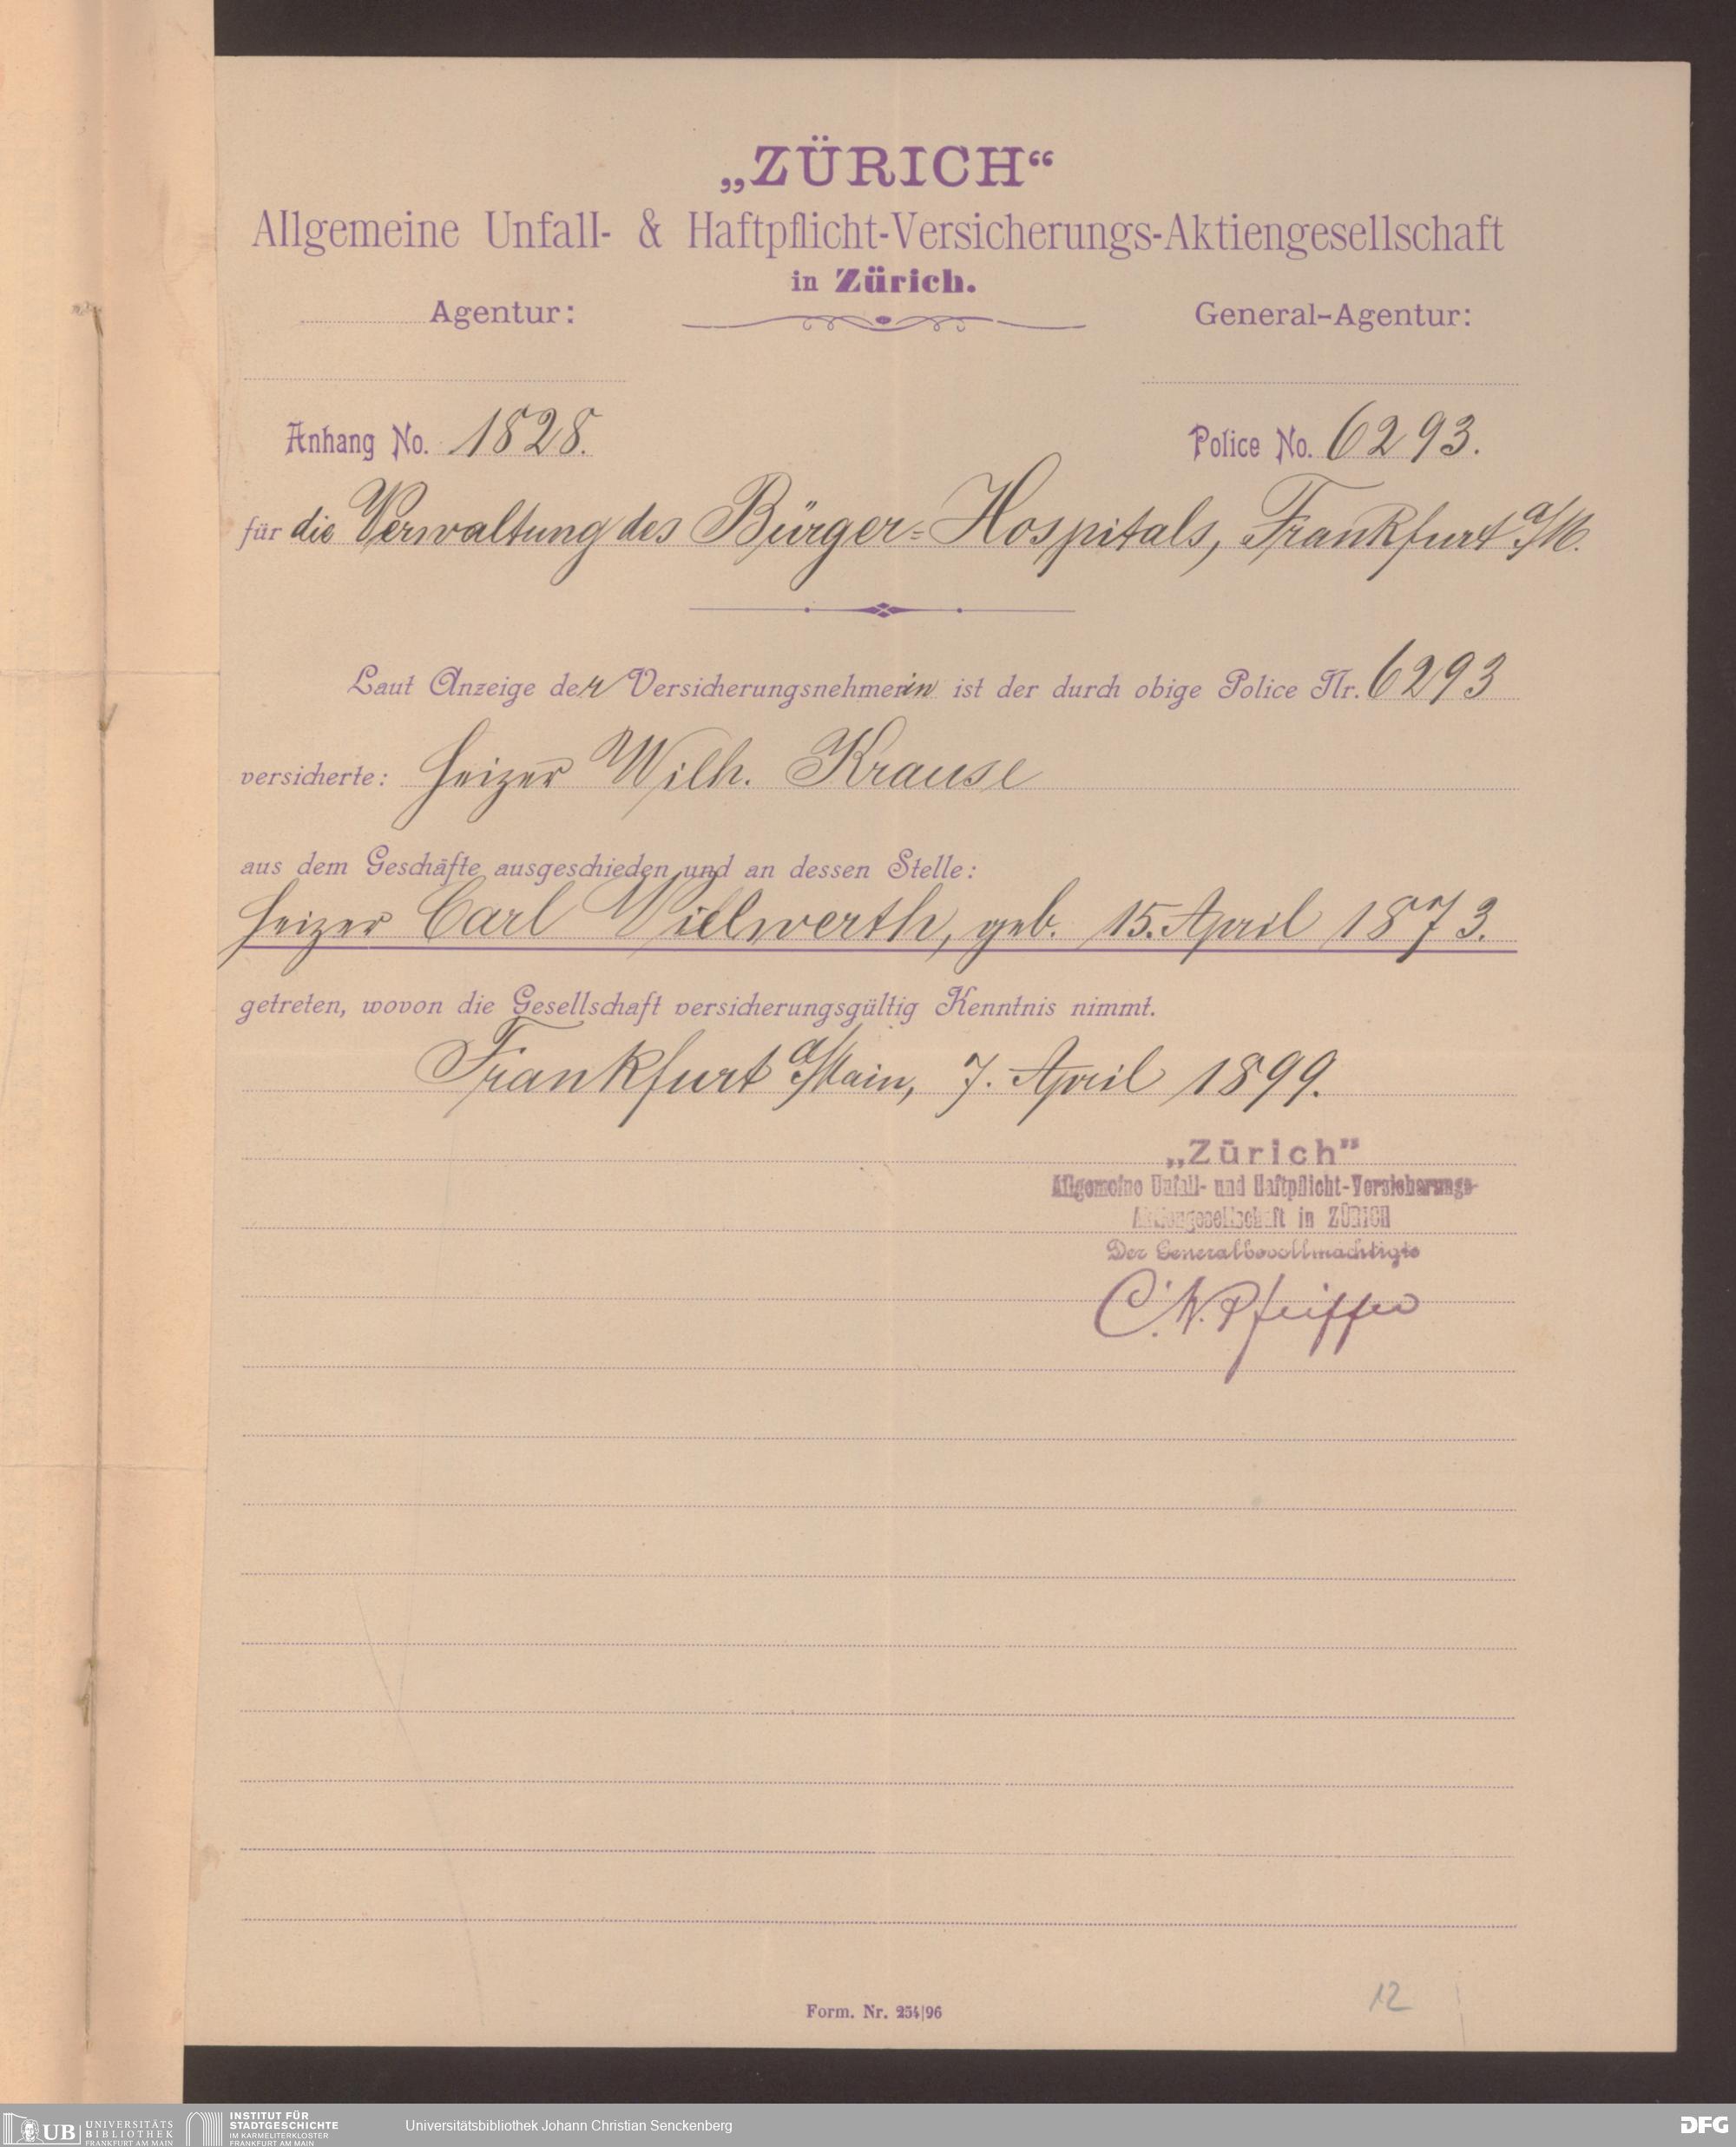 „ZÜRICH“
Allgemeine Unfall- & Haftpflicht-Versicherungs-Aktiengesellschaft
in Zürich.
Agentur:
General-Agentur:
Anhang No. 1828.
Police No. 6293.
für die Verwaltung des Bürger-Hospitals, Frankfurt a/M.
Laut Anzeige der Versicherungsnehmerin ist der durch obige Police Nr. 6293
versicherte: Heizer Wilh. Krause
aus dem Geschäfte ausgeschieden und an dessen Stelle:
Heizer Carl Villwerth, geb. 15. April 1873.
getreten, wovon die Gesellschaft versicherungsgültig Kenntnis nimmt.
Frankfurt a/Main, 7. April 1899.
„Zürich”
Allgemeine Unfall- und Haftpflicht-Versicherungs-
Aktiengesellschaft in ZÜRICH
Der Generalbevollmächtigte
C. W. Pfeiffer
Form. Nr. 254|96
12
UB UNIVERSITÄTS
BIBLIOTHEK
FRANKFURT AM MAIN
INSTITUT FÜR
STADTGESCHICHTE
IM KARMELITERKLOSTER
FRANKFURT AM MAIN
Universitätsbibliothek Johann Christian Senckenberg
DFG